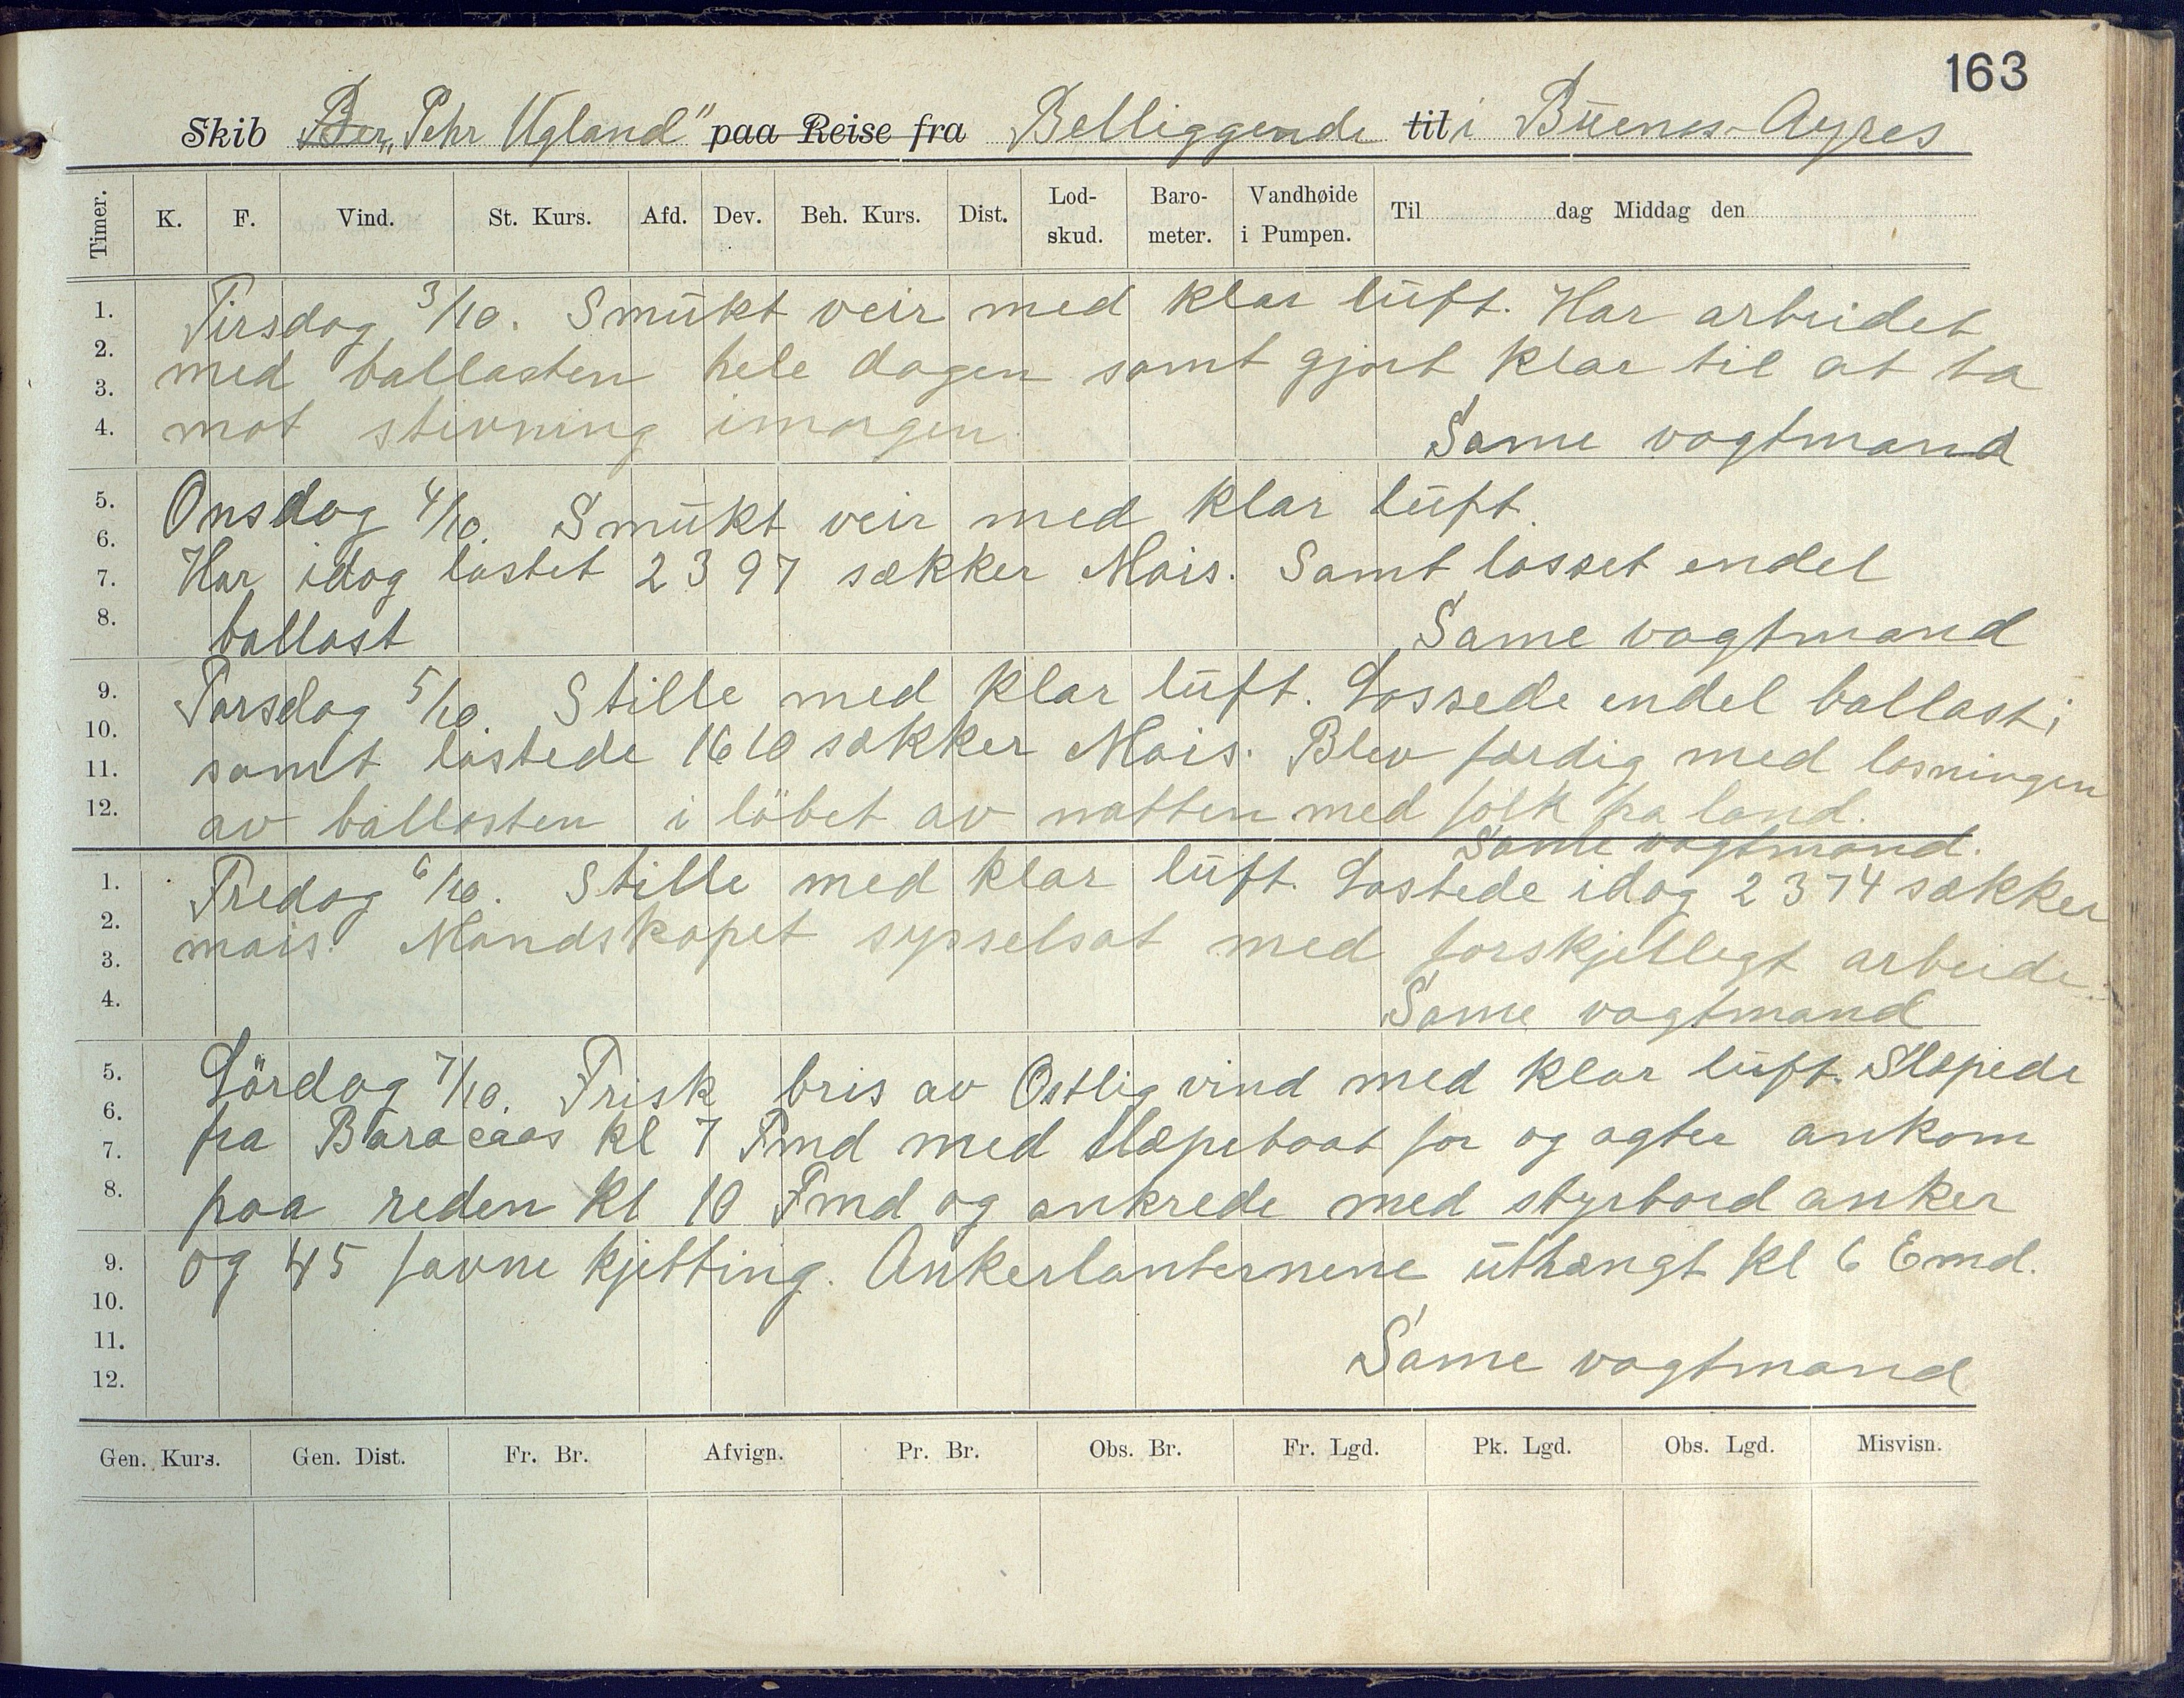 163
Skib "Pehr Ugland" paa Reise fra Belliggende til i Buenos-Ayres
Timer. K. F. Vind. St. Kurs. Afd. Dev. Beh. Kurs. Dist. Lod-skud. Baro-meter. Vandhøide i Pumpen. Til dag Middag den
1. 2. 3. 4.
Tirsdag 3/10. Smukt veir med klar luft. Har arbeidet
med ballasten hele dagen samt gjort klar til at ta
mot stivning imorgen.
Same vagtmand
5. 6. 7. 8.
Onsdag 4/10. Smukt veir med klar luft.
Har idag lastet 2397 sækker Mais. Samt losset endel
ballast
Same vagtmand
9. 10. 11. 12.
Torsdag 5/10. Stille med klar luft. Lossede endel ballast;
samt lastede 1610 sækker Mais. Blev færdig med losningen
av ballasten i löbet av natten med folk fra land.
Same vagtmand.
1. 2. 3. 4.
Fredag 6/10. Stille med klar luft. Lastede idag 2374 sækker
mais. Mandskapet sysselsat med forskjelligt arbeide.
Same vagtmand
5. 6. 7. 8.
Lördag 7/10. Frisk bris av Ostlig vind med klar luft. Slæpede
fra Baracaas kl 7 Fmd med slæpebaat for og agter ankom
paa reden kl 10 Fmd og ankrede med styrbord anker
9. 10. 11. 12.
og 45 favne kjetting. Ankerlanternene uthængt kl 6 Emd.
Same vagtmand
Gen. Kurs. Gen. Dist. Fr. Br. Afvign. Pr. Br. Obs. Br. Fr. Lgd. Pk. Lgd. Obs. Lgd. Misvisn.